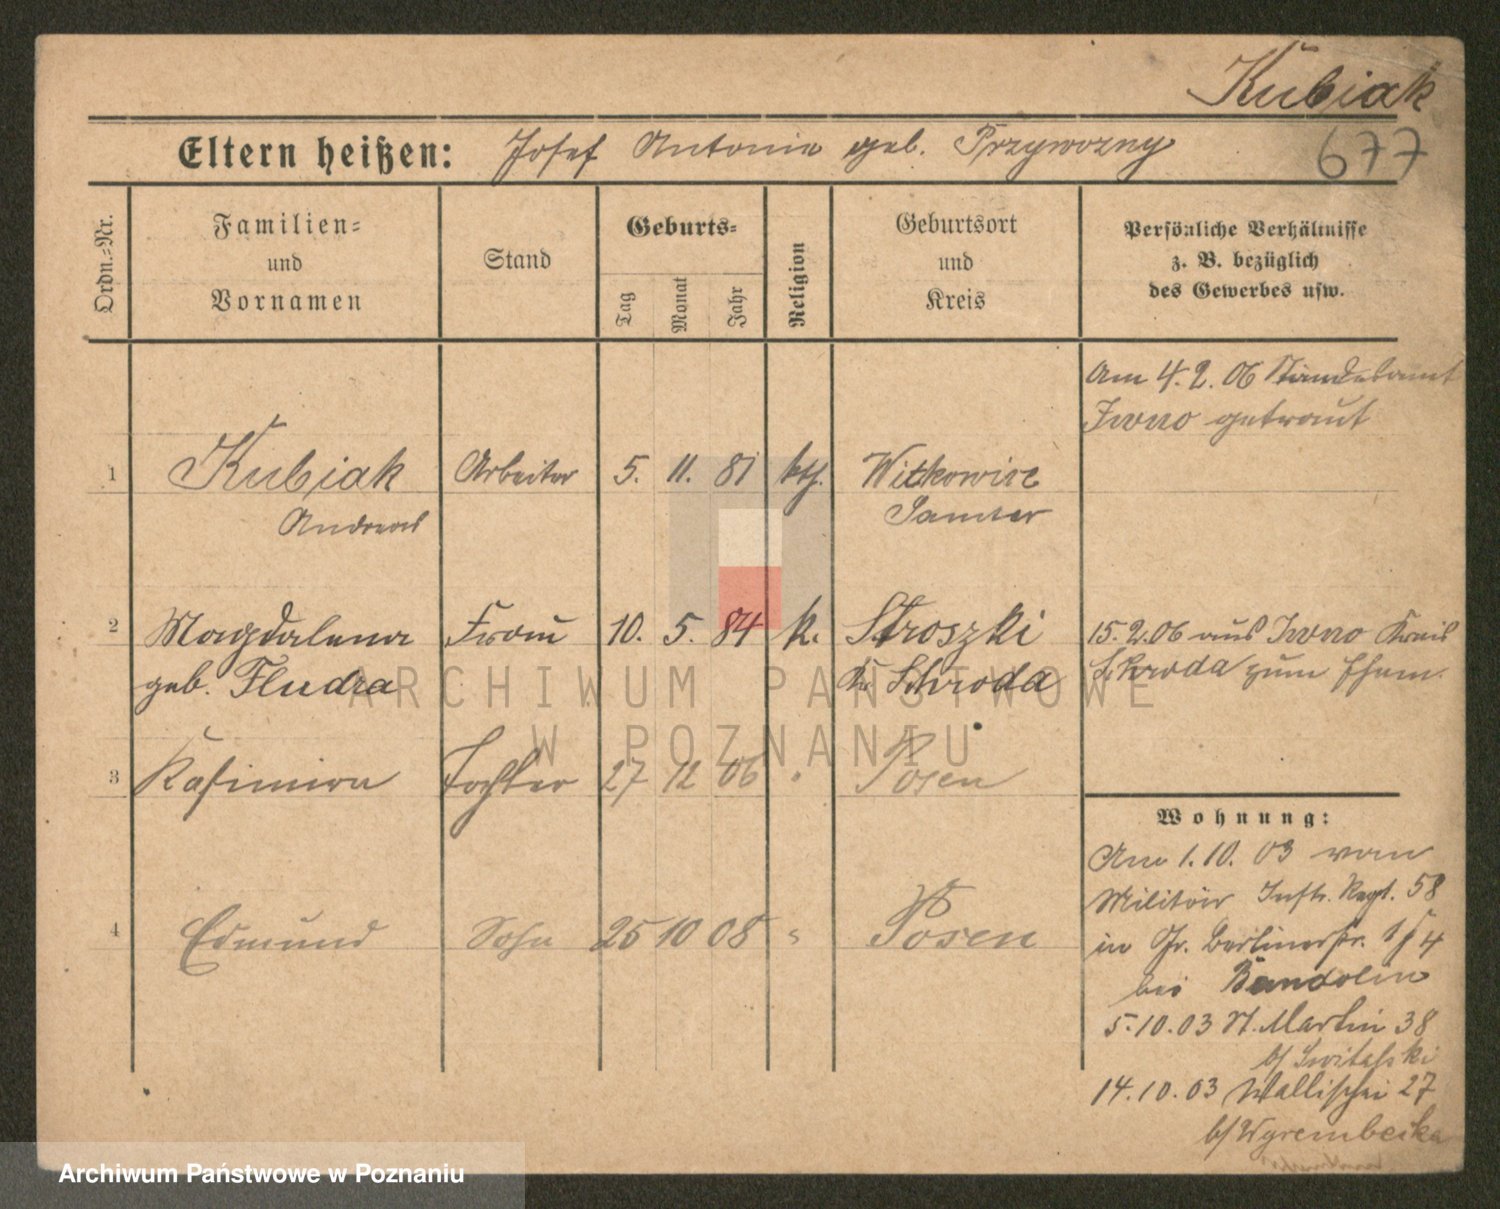 Kubiak
Eltern heißen: Josef Antonie geb. Przywozny
677
Ordn.=Nr.
Familien=
und
Vornamen
Stand
Geburts=
Tag
Monat
Jahr
Religion
Geburtsort
und
Kreis
Persönliche Verhältnisse
z. B. bezüglich
des Gewerbes usw.
Am 4.2.06 Standesamt
Iwno getraut
1 Kubiak Arbeiter 5. 11. 81 kth. Witkowice
Andreas Samter
2 Magdalena Frau 10. 5. 84 k. Stroszki
geb. Fludra Kr. Schroda
15.2.06 aus Iwno Kreis
Schroda zum Ehem.
3 Kasimira Tochter 27 12 06 " Posen
4 Edmund Sohn 25 10 08 " Posen
Wohnung:
Am 1.10.03 vom
Militär Inftr. Regt. 58
in Gr. Berlinerstr.
bei Bandolin
5.10.03 St. Martin 38
b/ Switalski
14.10.03 Wallischei 27
b/ Wgrembecka
ARCHIWUM PAŃSTWOWE
W POZNANIU
Archiwum Państwowe w Poznaniu